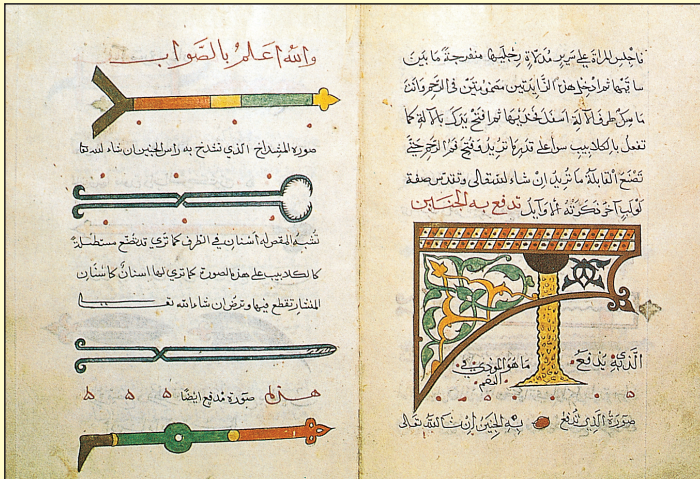 فاجلس المراة على سرير مدلاة رجليها منفرجة ما بين
ساقيها ثم ادخل هذا الزايدتين مضمومتين في الرحم وانت
ماسك طرف الالة اسفل فخذيها ثم افتح يدك بالالة كما
تفعل بالكلاليب سوا على قدر ما تريد وفتح فم الرحم حتى
تصنع القابلة ما تريد ان شاء الله تعالى وتقدس صفة
لولب اخر ذكرته الاوايل تدفع به الجنين
الذي يدفع ما هو
صورة الذي تدفع به الجنين ان شا الله تعالى
والله اعلمُ بالصّواب
صورة المشداخ الذي تشدخ به راس الجنين ان شاء الله تعا
تشبه المقص له اسنان في الطرف كما تري قد تصنع مستطيلة
كالكلاليب على هذه الصورة كما تري لها اسنان كاسنان
المنشار تقطع فيها وترض ان شاء الله تعـ
هذه صورة مدفع ايضا ه ه ه